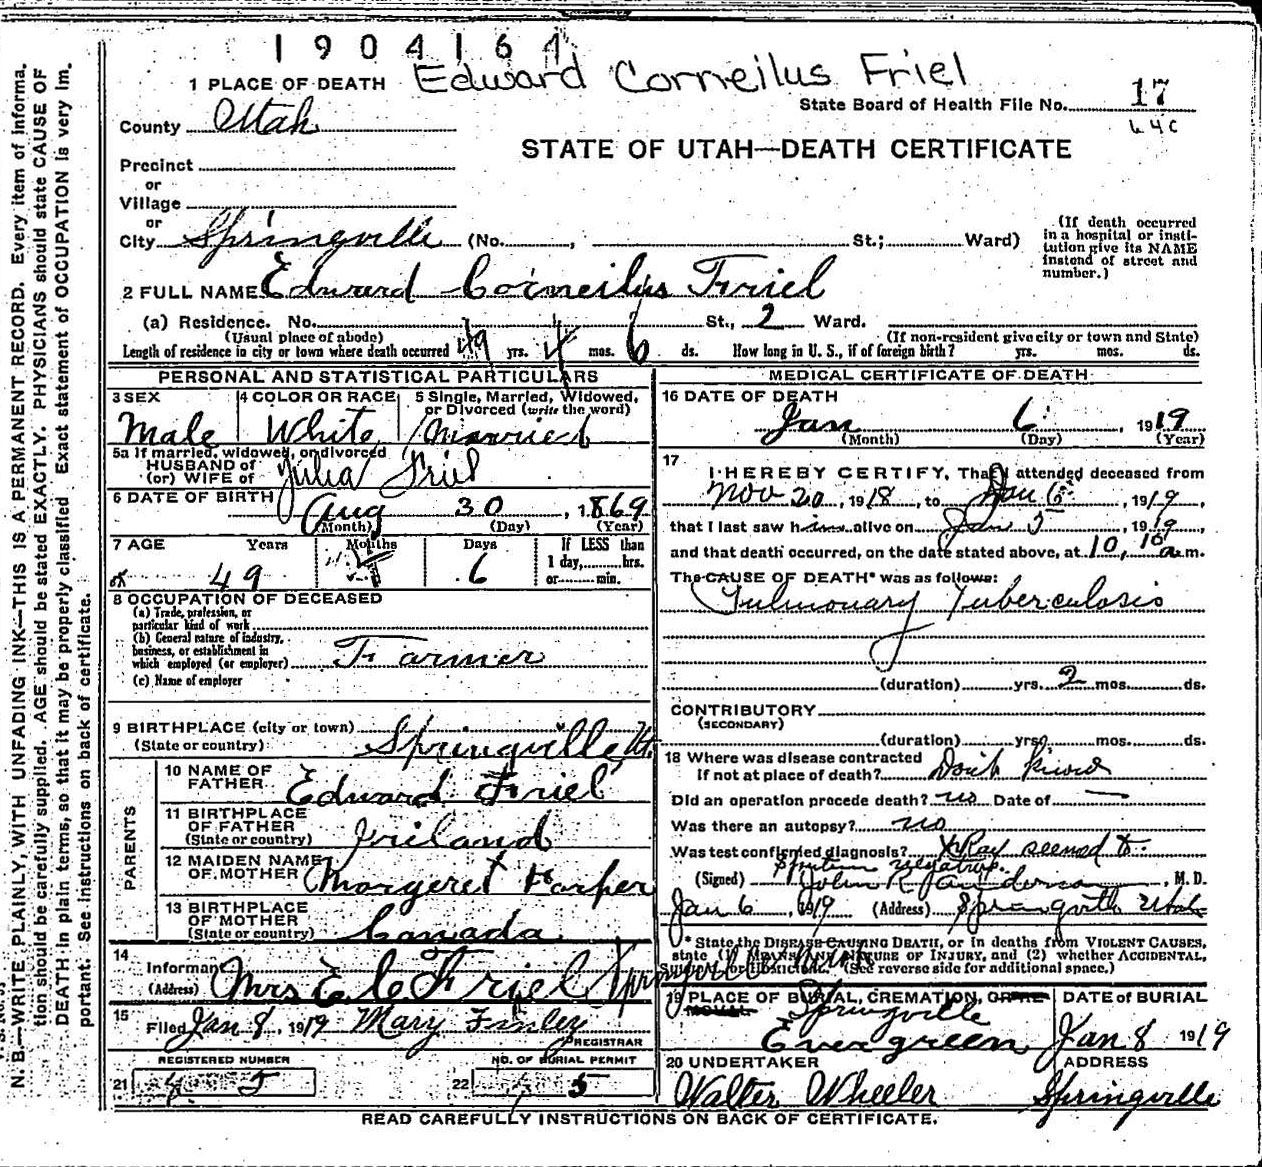 1904164
Edward Corneilus Friel
1 PLACE OF DEATH
State Board of Health File No. 17
64C
County Utah
STATE OF UTAH—DEATH CERTIFICATE
Precinct
or
Village
or
City Springville (No. , St.; Ward)
(If death occurred
in a hospital or insti-
tution give its NAME
instead of street and
number.)
2 FULL NAME Edward Corneilus Friel
(a) Residence. No. St., 2 Ward.
(Usual place of abode)
(If non-resident give city or town and State)
Length of residence in city or town where death occurred 49 yrs. 4 mos. 6 ds. How long in U. S., if of foreign birth? yrs. mos. ds.
PERSONAL AND STATISTICAL PARTICULARS
3 SEX
Male
4 COLOR OR RACE
White
5 Single, Married, Widowed,
or Divorced (write the word)
Married
5a If married, widowed, or divorced
HUSBAND of
(or) WIFE of
Julia Friel
6 DATE OF BIRTH
Aug 30, 1869
(Month) (Day) (Year)
7 AGE Years Months Days
49 4 6
If LESS than
1 day, hrs.
or min.
8 OCCUPATION OF DECEASED
(a) Trade, profession, or
particular kind of work
(b) General nature of industry,
business, or establishment in
which employed (or employer) Farmer
(c) Name of employer
9 BIRTHPLACE (city or town)
(State or country) Springville Ut.
PARENTS
10 NAME OF
FATHER Edward Friel
11 BIRTHPLACE
OF FATHER
(State or country) Irland
12 MAIDEN NAME
OF MOTHER Margeret Harper
13 BIRTHPLACE
OF MOTHER
(State or country) Canada
14
Informant
(Address) Mrs E C Friel Springville
15
Filed Jan 8, 1919 Mary Finley
REGISTRAR
REGISTERED NUMBER
21 5
NO. OF BURIAL PERMIT
22 5
MEDICAL CERTIFICATE OF DEATH
16 DATE OF DEATH
Jan 6, 1919
(Month) (Day) (Year)
17
I HEREBY CERTIFY, That I attended deceased from
Nov 20, 1918, to Jan 6, 1919,
that I last saw him alive on Jan 5, 1919,
and that death occurred, on the date stated above, at 10,10 a.m.
The CAUSE OF DEATH* was as follows:
Pulmonary Tuberculosis
(duration) yrs. 2 mos. ds.
CONTRIBUTORY
(SECONDARY)
(duration) yrs. mos. ds.
18 Where was disease contracted
if not at place of death? Don't know
Did an operation precede death? no Date of —
Was there an autopsy? no
Was test confirmed diagnosis? XRay seemed to.
Sputum negative.
(Signed) John R. Anderson, M. D.
Jan 6, 1919 (Address) Springville Utah
* State the DISEASE CAUSING DEATH, or in deaths from VIOLENT CAUSES,
state (1) MEANS AND NATURE OF INJURY, and (2) whether ACCIDENTAL,
SUICIDAL or HOMICIDAL. (See reverse side for additional space.)
19 PLACE OF BURIAL, CREMATION, OR RE-
MOVAL
Springville
Evergreen
DATE OF BURIAL
Jan 8 1919
20 UNDERTAKER
Walter Wheeler
ADDRESS
Springville
READ CAREFULLY INSTRUCTIONS ON BACK OF CERTIFICATE.
N. B.—WRITE PLAINLY, WITH UNFADING INK—THIS IS A PERMANENT RECORD. Every item of informa-
tion should be carefully supplied. AGE should be stated EXACTLY. PHYSICIANS should state CAUSE OF
DEATH in plain terms, so that it may be properly classified. Exact statement of OCCUPATION is very im-
portant. See instructions on back of certificate.